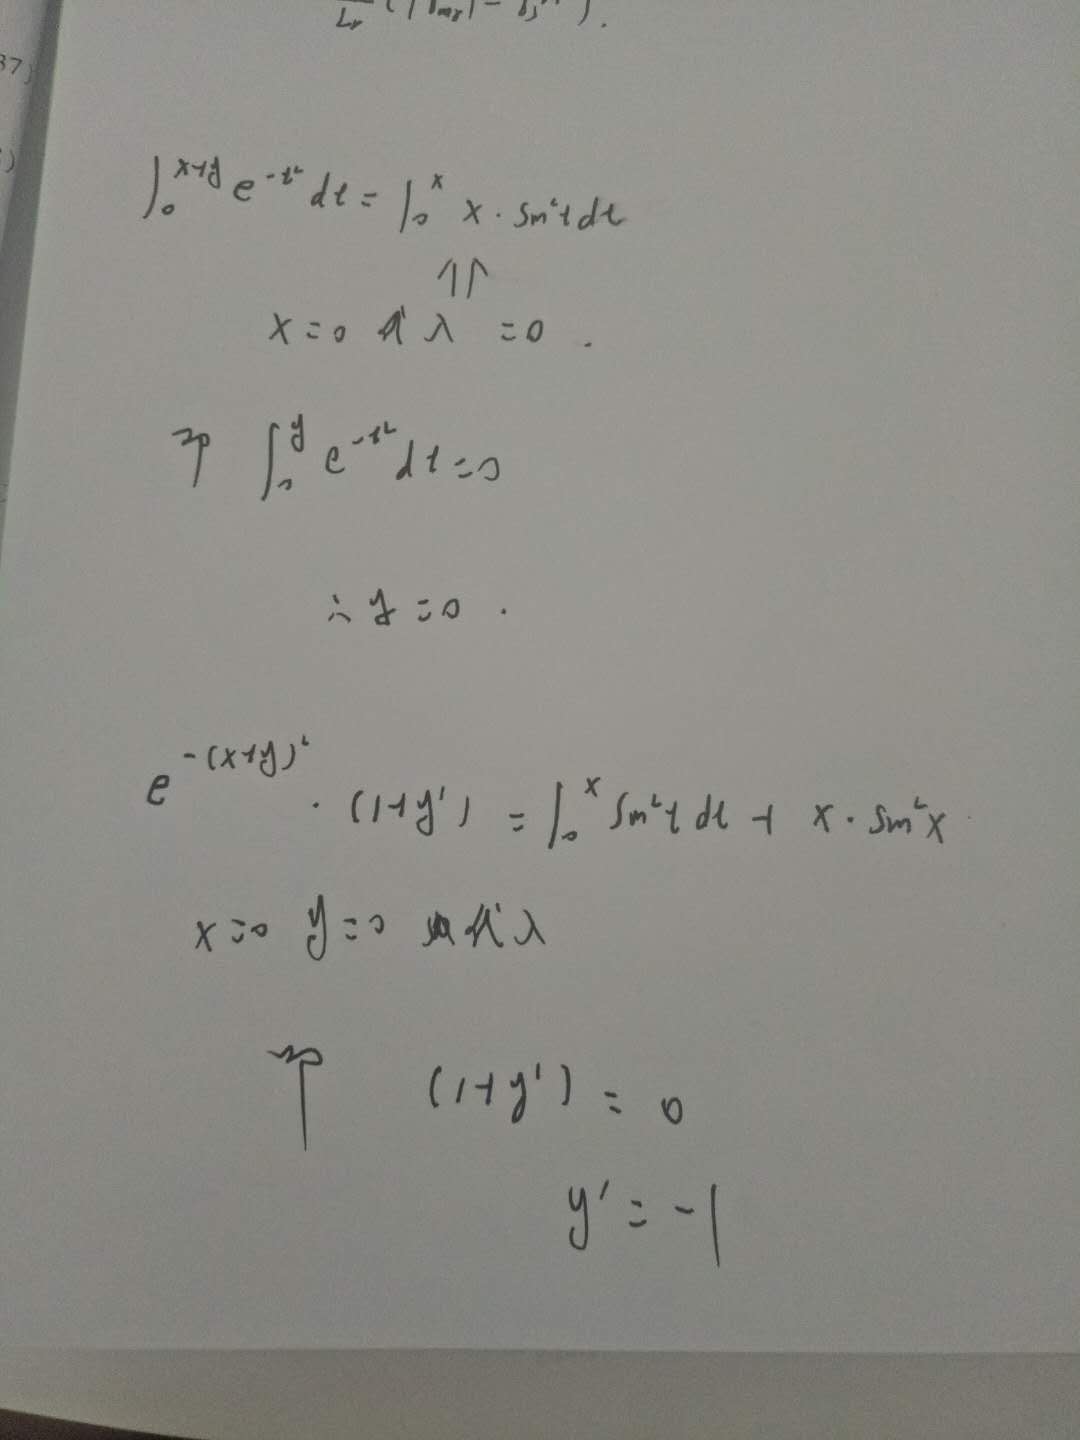 37)
∫₀^{x+y} e^{-t²} dt = ∫₀^x x · sin²t dt
⇑
x=0 代入 =0 .
即 ∫₀^y e^{-t²} dt = 0
∴ y = 0 .
e^{-(x+y)²} · (1+y') = ∫₀^x sin²t dt + x · sin²x
x=0 y=0 代入
即 (1+y') = 0
y' = -1